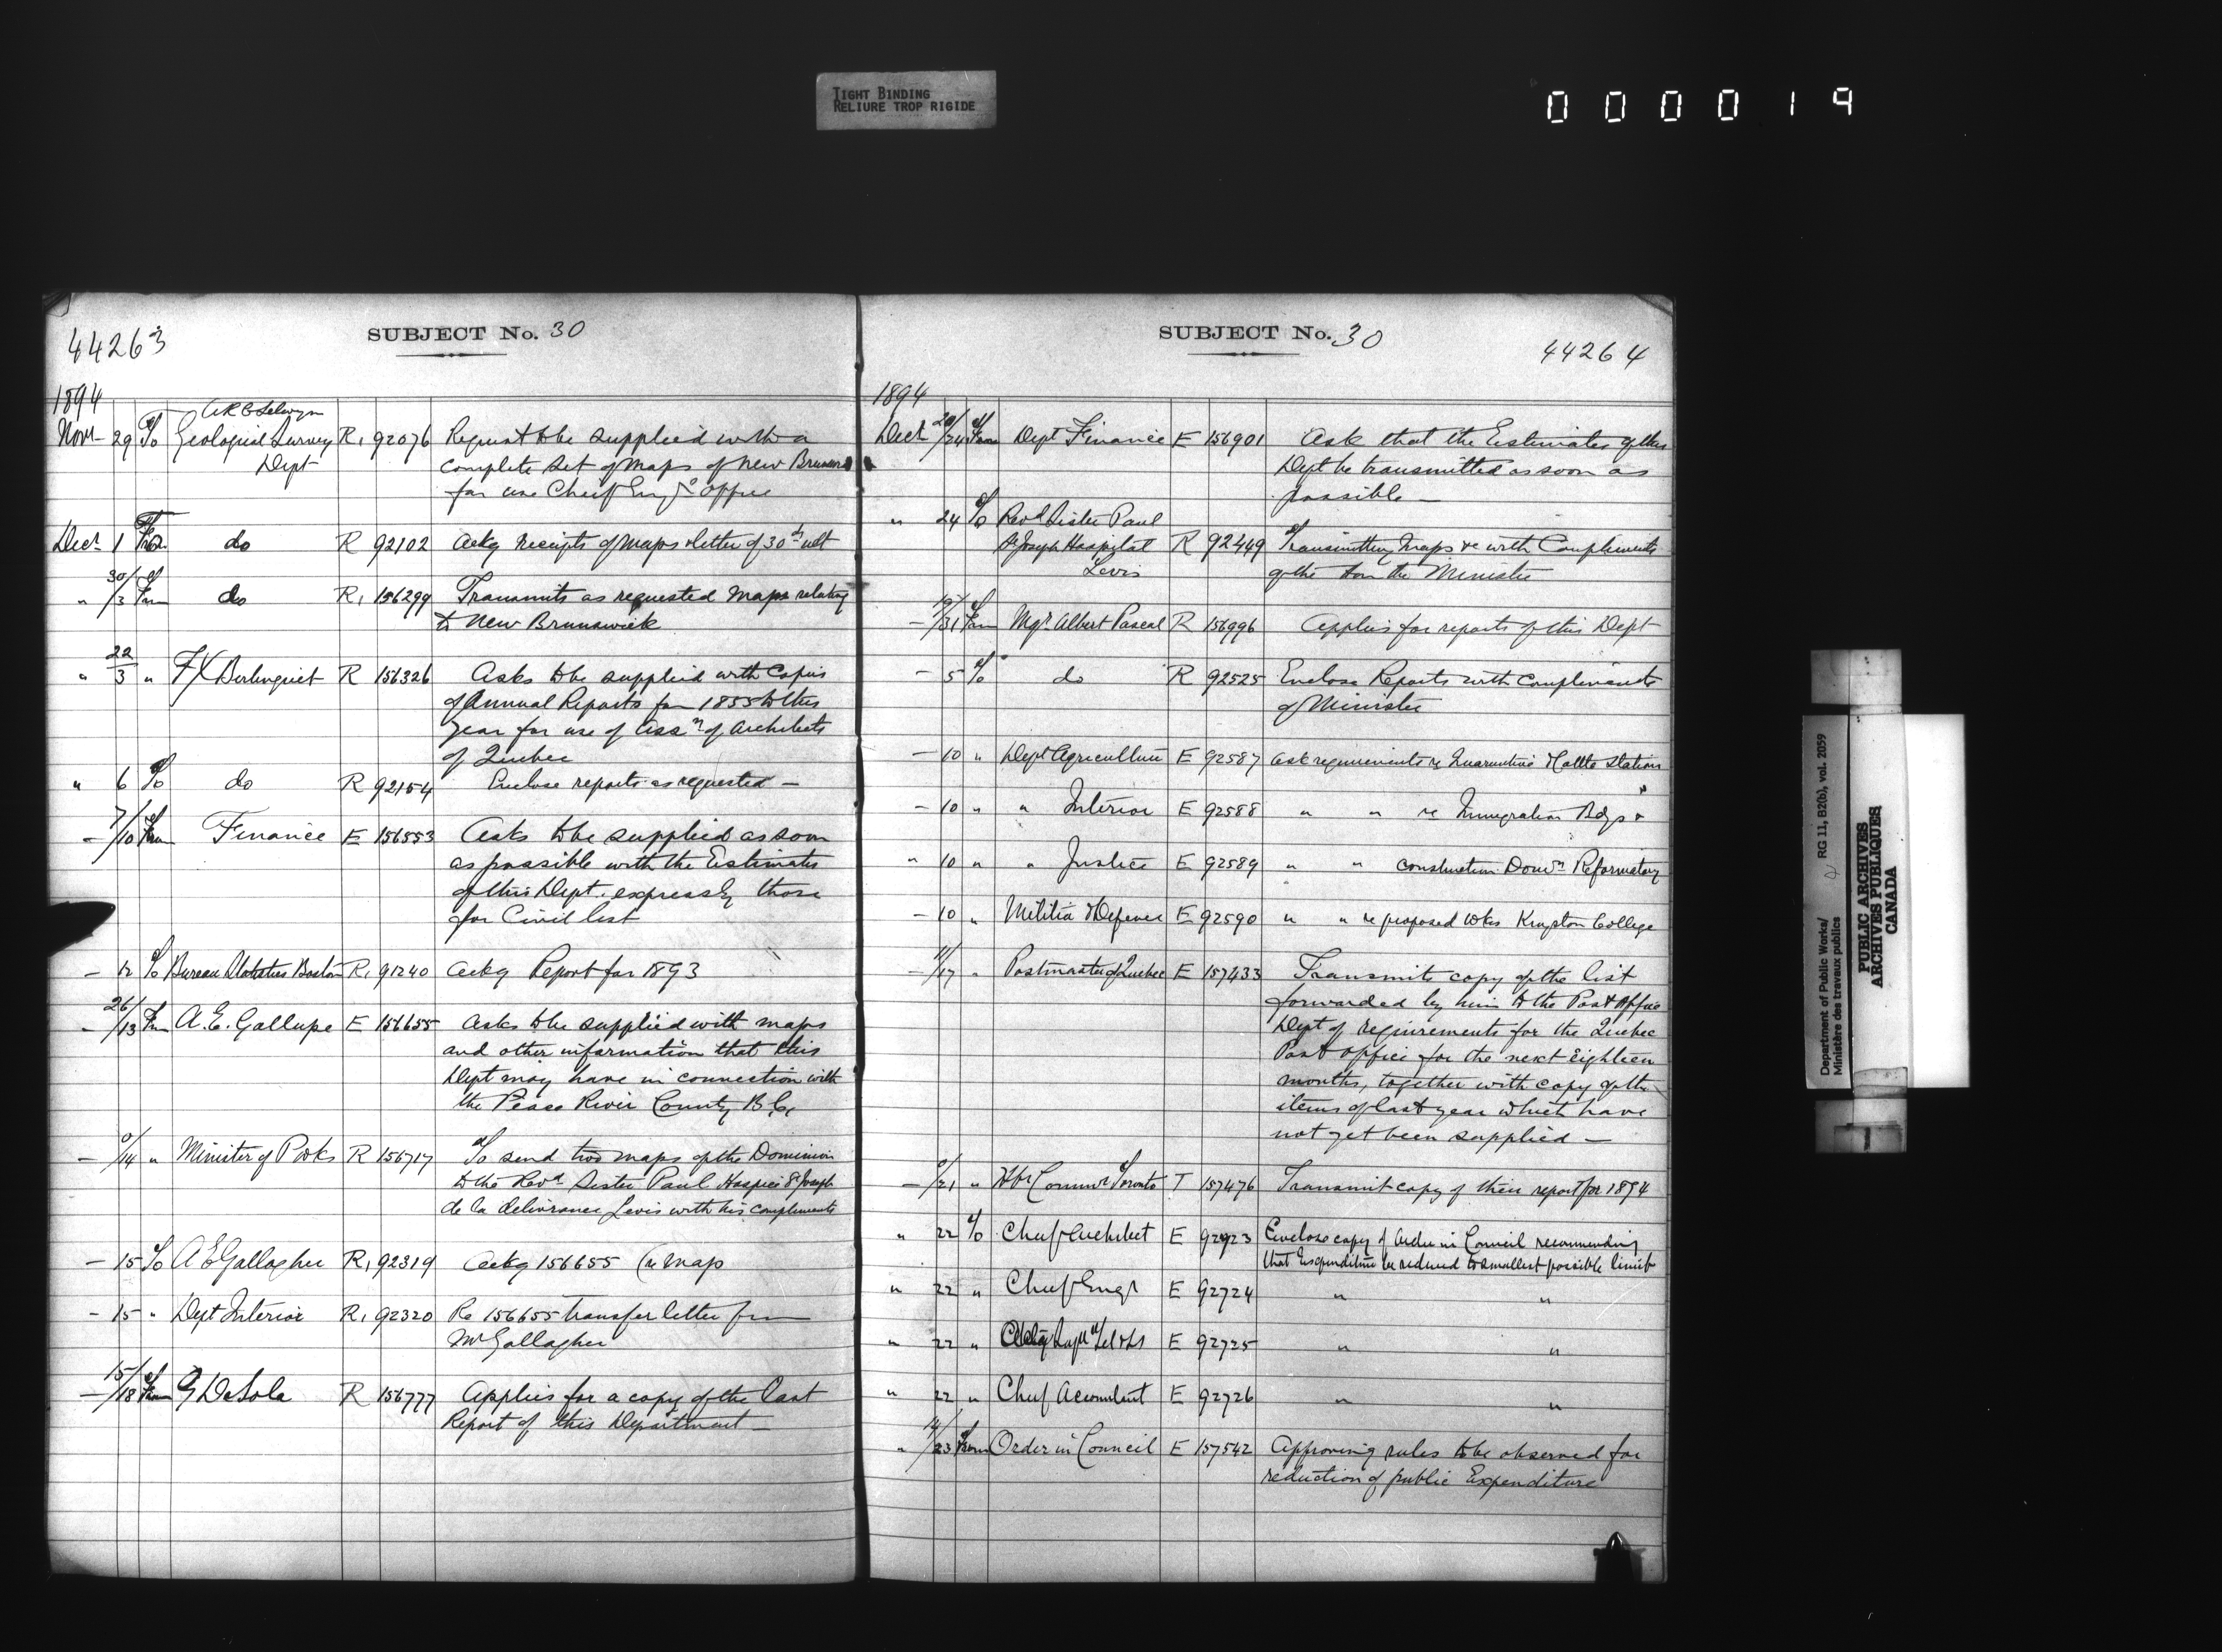 TIGHT BINDING
RELIURE TROP RIGIDE
000019
44263
SUBJECT No. 30
1894
A R C Selwyn
Novr 29 To Geological Survey R1 92076 Request to be supplied with a
Dept complete set of maps of New Brunswick
for use Chief Engrs office
Decr 1 From do R 92102 Ackg receipts of maps & letter of 30th ult
" 30/3 From do R1 156299 Transmits as requested maps relating
to New Brunswick
" 22/3 " F X Berlinguet R 156326 Asks to be supplied with Copies
of Annual Reports from 1855 to this
year for use of Assn of Architects
of Quebec
" 6 To do R 92154 Enclose reports as requested —
— 7/10 From Finance E 156553 Asks to be supplied as soon
as possible with the Estimates
of this Dept. expressly those
for Civil list
— 12 To Bureau Statistics Boston R1 91240 Ackg Report for 1893
— 26/13 From A. E. Gallupe E 156655 Asks to be supplied with maps
and other information that this
Dept may have in connection with
the Peace River County B.C.
— 0/14 " Minister of P Wks R 156717 To send two maps of the Dominion
to the Revd Sister Paul Hospice St Joseph
de la délivrance Levis with his compliments
— 15 To A E Gallagher R1 92319 Ackg 156655 (re map
— 15 " Dept Interior R1 92320 Re 156655 transfer letter from
Mr Gallagher
— 15/18 From G DeSola R 156777 Applies for a copy of the last
Report of this Department —
SUBJECT No. 30
44264
1894
Decr 20/24 From Dept Finance E 156901 Ask that the Estimates of this
Dept be transmitted as soon as
possible —
" 24 To Revd Sister Paul
St Joseph Hospital R 92449 Transmitting maps &c with Compliments
Levis of the Hon the Minister
— 19/31 From Mgr Albert Pascal R 156996 Applies for reports of this Dept
— 5 To do R 92525 Enclose Reports with compliments
of Minister
— 10 " Dept Agriculture E 92587 Ask requirements re Quarantine & Cattle Station
— 10 " " Interior E 92588 " " re Immigration Bdgs "
" 10 " " Justice E 92589 " " construction Domn Reformatory
— 10 " Militia & Defence E 92590 " " re proposed wks Kingston College
— 11/17 " Postmaster of Quebec E 157433 Transmits copy of the list
forwarded by him to the Post Office
Dept of requirements for the Quebec
Post Office for the next Eighteen
months, together with copy of the
items of last year which have
not yet been supplied —
— 0/21 " Hbr Commrs Toronto T 157476 Transmit copy of their report for 1894
" 22 To Chief Architect E 92723 Enclose copy of Order in Council recommending
that Expenditure be reduced to smallest possible limit
" 22 " Chief Engr E 92724 " "
" 22 " Supt Tel E 92725 " "
" 22 " Chief Accountant E 92726 " "
" 14/23 From Order in Council E 157542 Approving rules to be observed for
reduction of public Expenditure
Department of Public Works/ RG 11, B2(b), vol. 2059
Ministère des travaux publics
PUBLIC ARCHIVES
ARCHIVES PUBLIQUES
CANADA